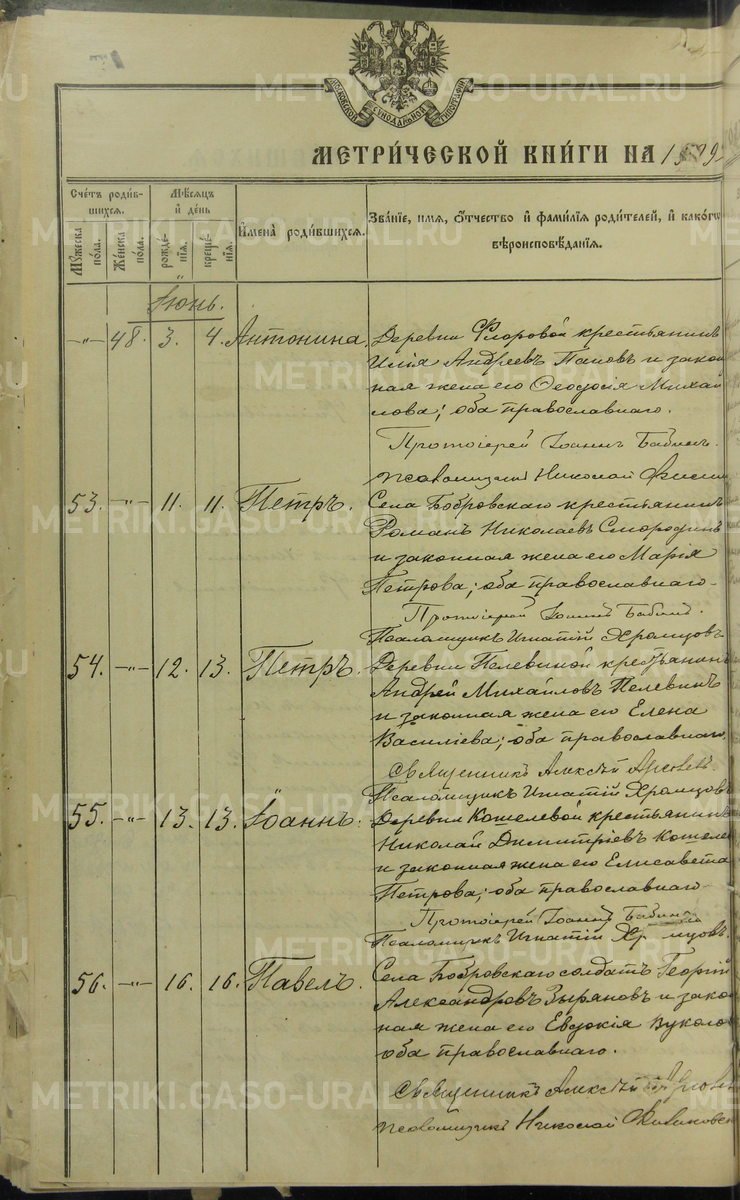 МОСКОВСКОЙ СѴНОДАЛЬНОЙ ТИПОГРАФІИ
МЕТРИ́ЧЕСКОЙ КНИ́ГИ НА 1892
Сче́тъ роди́вшихся.
Му́жеска по́ла.
Же́нска по́ла.
Мѣ́сяцъ и҆ де́нь
рожде́нія.
креще́нія.
И҆мена̀ роди́вшихся.
Зва́нїе, и҆́мя, ѻ҆́тчество и҆ фами́лїя роди́телей, и҆ како́гѡ вѣроисповѣ́данїя.
Іюнь.
-"- 48. 3. 4. Антонина. Деревни Флоровой крестьянинъ
Илія Андреевъ Пановъ и закон
ная жена его Ѳеодосія Михай
лова; оба православнаго.
Протоіерей Іоаннъ Бабинъ.
Псаломщикъ Николай
53. -"- 11. 11. Петръ. Села Бобровскаго крестьянинъ
Романъ Николаевъ Смородинъ
и законная жена его Марія
Петрова; оба православнаго.
Протоіерей Іоаннъ Бабинъ.
Псаломщикъ Игнатій Хромцовъ
54. -"- 12. 13. Петръ. Деревни Пелевиной крестьянинъ
Андрей Михайловъ Пелевинъ
и законная жена его Елена
Василіева; оба православнаго.
Священникъ Алексѣй
Псаломщикъ Игнатій Хромцовъ
55. -"- 13. 13. Іоаннъ. Деревни Кошелевой крестьянинъ
Николай Димитріевъ Кошеле
и законная жена его Елисавета
Петрова; оба православнаго.
Протоіерей Іоаннъ Бабинъ
Псаломщикъ Игнатій Хромцовъ.
56. -"- 16. 16. Павелъ. Села Бобровскаго солдатъ Георгій
Александровъ Зыряновъ и закон
ная жена его Евдокія Вуколо
оба православнаго.
Священникъ Алексѣй
Псаломщикъ Николай
METRIKI.GASO-URAL.RU